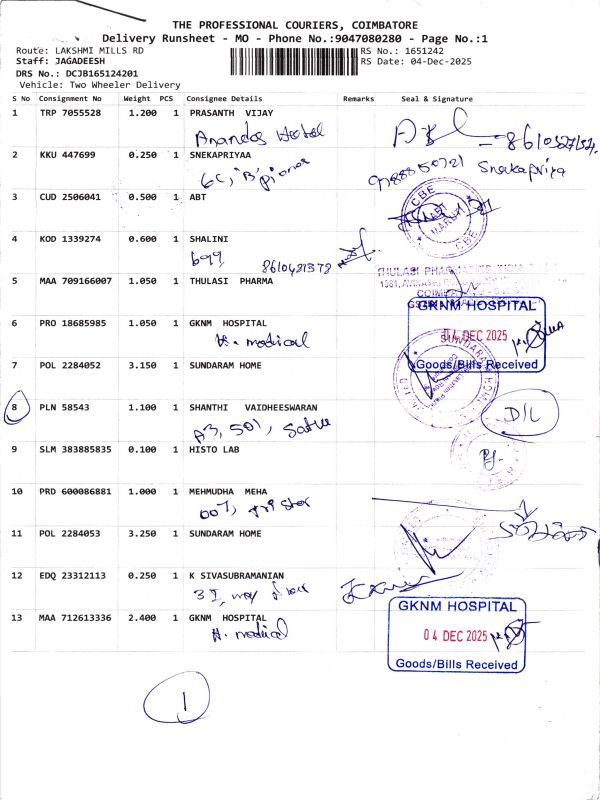 THE PROFESSIONAL COURIERS, COIMBATORE
Delivery Runsheet - MO - Phone No.:9047080280 - Page No.:1
Route: LAKSHMI MILLS RD RS No.: 1651242
Staff: JAGADEESH RS Date: 04-Dec-2025
DRS No.: DCJB165124201
Vehicle: Two Wheeler Delivery
S No Consignment No Weight PCS Consignee Details Remarks Seal & Signature
1 TRP 7055528 1.200 1 PRASANTH VIJAY
2 KKU 447699 0.250 1 SNEKAPRIYAA
6C, 9788850721 Snekapriya
3 CUD 2506041 0.500 1 ABT
CBE
CBE
4 KOD 1339274 0.600 1 SHALINI
699 8610431378
5 MAA 709166007 1.050 1 THULASI PHARMA
THULASI
6 PRO 18685985 1.050 1 GKNM HOSPITAL
H. medical
GKNM HOSPITAL
04 DEC 2025
Goods/Bills Received
7 POL 2284052 3.150 1 SUNDARAM HOME
8 PLN 58543 1.100 1 SHANTHI VAIDHEESWARAN
A3, 501, D/L
9 SLM 383885835 0.100 1 HISTO LAB
10 PRD 600086881 1.000 1 MEHMUDHA MEHA
007,
11 POL 2284053 3.250 1 SUNDARAM HOME
12 EDQ 23312113 0.250 1 K SIVASUBRAMANIAN
13 MAA 712613336 2.400 1 GKNM HOSPITAL
H. medical
GKNM HOSPITAL
04 DEC 2025
Goods/Bills Received
1